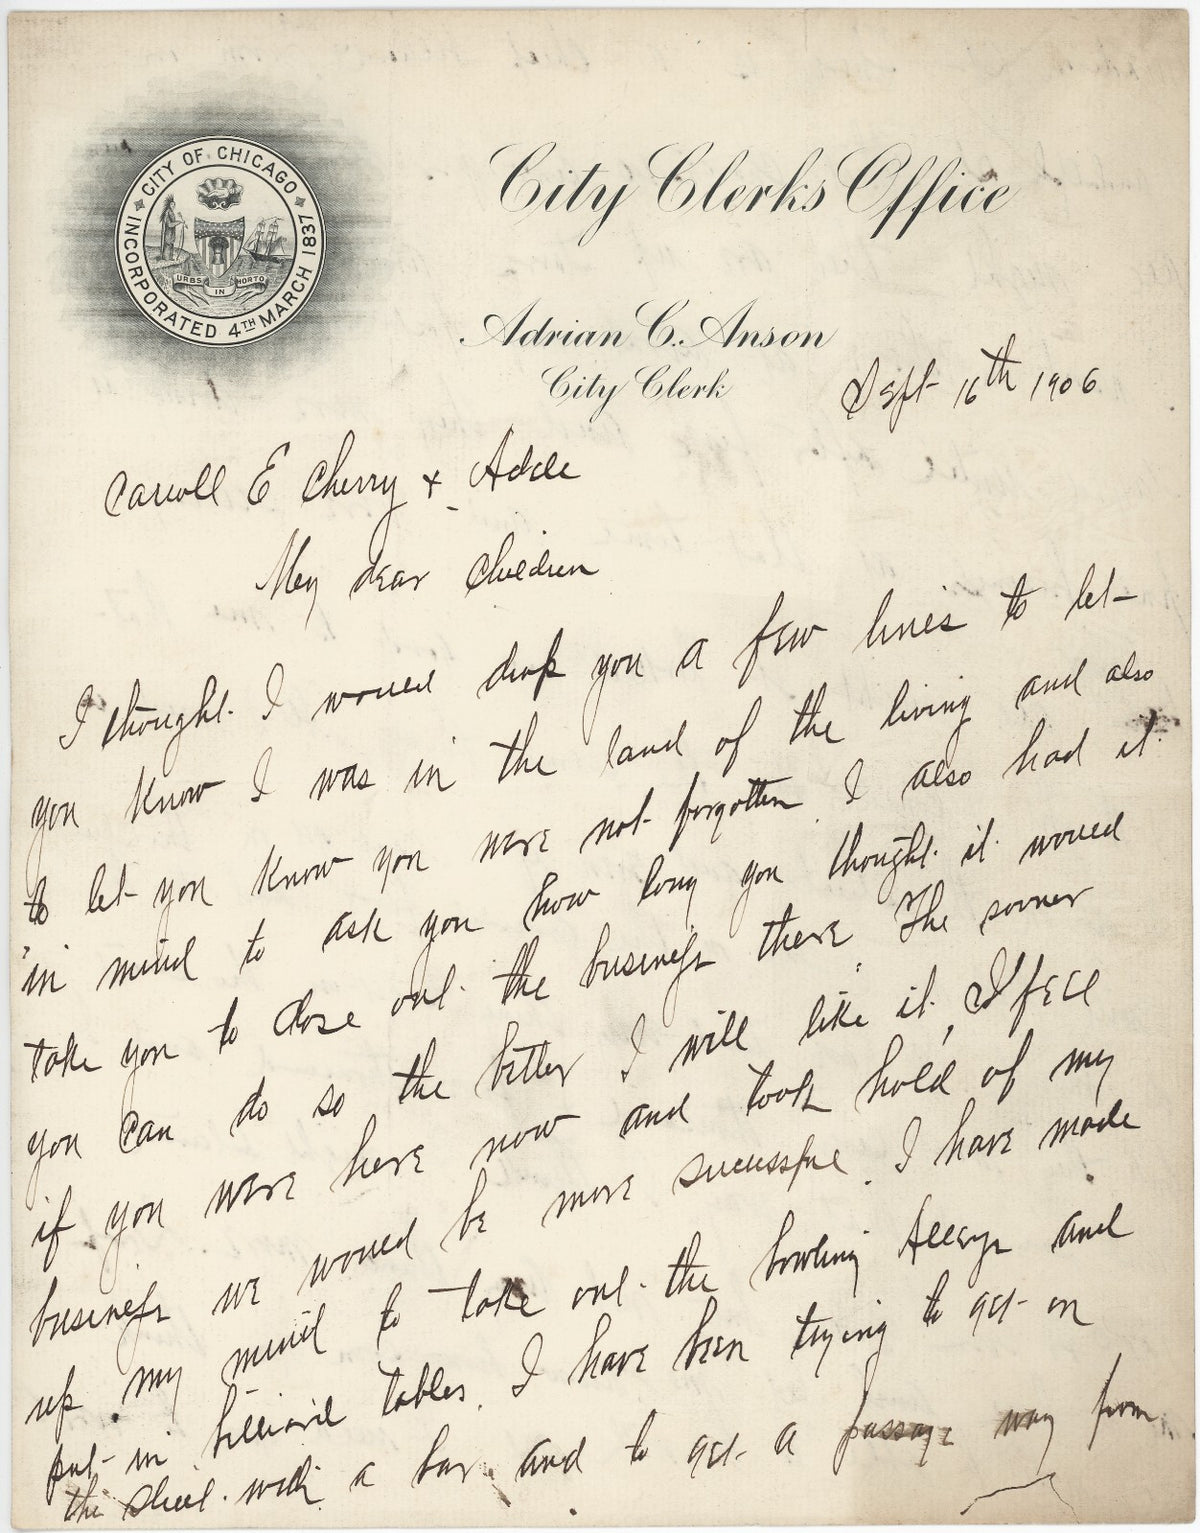 CITY OF CHICAGO
INCORPORATED 4TH MARCH 1837
URBS IN HORTO
City Clerks Office
Adrian C. Anson
City Clerk
Sept 16th 1906
Carroll E Cherry + Adele
My dear Children
I thought I would drop you a few lines to let
you know I was in the land of the living and also
to let you know you were not forgotten. I also had it
in mind to ask you how long you thought it would
take you to close out the business there The sooner
you can do so the better I will like it, I feel
if you were here now and took hold of my
business we would be more sucessful. I have made
up my mind to take out the bowling Alleys and
put in billiard tables. I have been trying to get on
the street with a bar and to get a passage way from